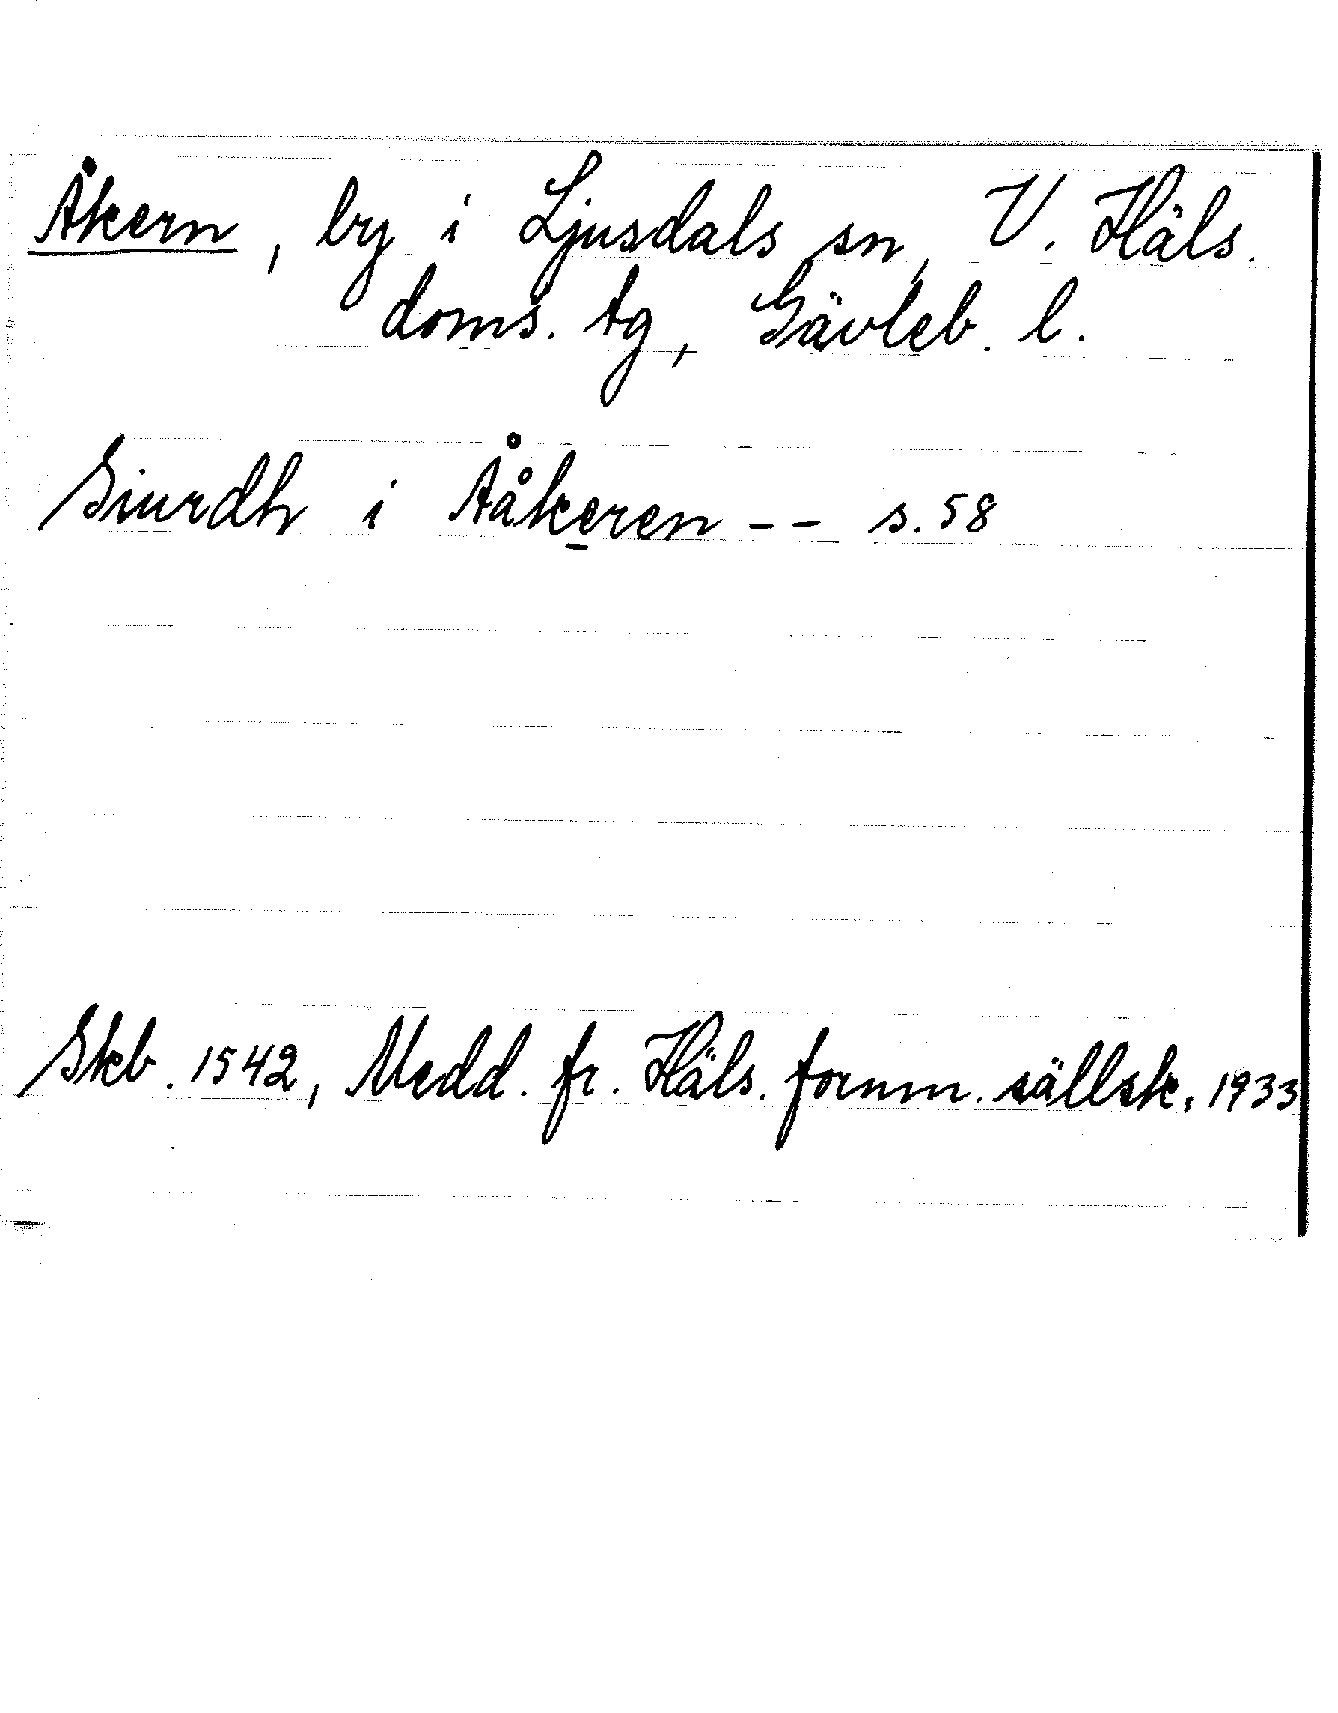 Åkern, by i Ljusdals sn, V. Häls.
doms. tg, Gävleb. l.
Siurdh i Ååkeren -- s. 58
Skb. 1542, Medd. fr. Häls. fornm. sällsk. 1933